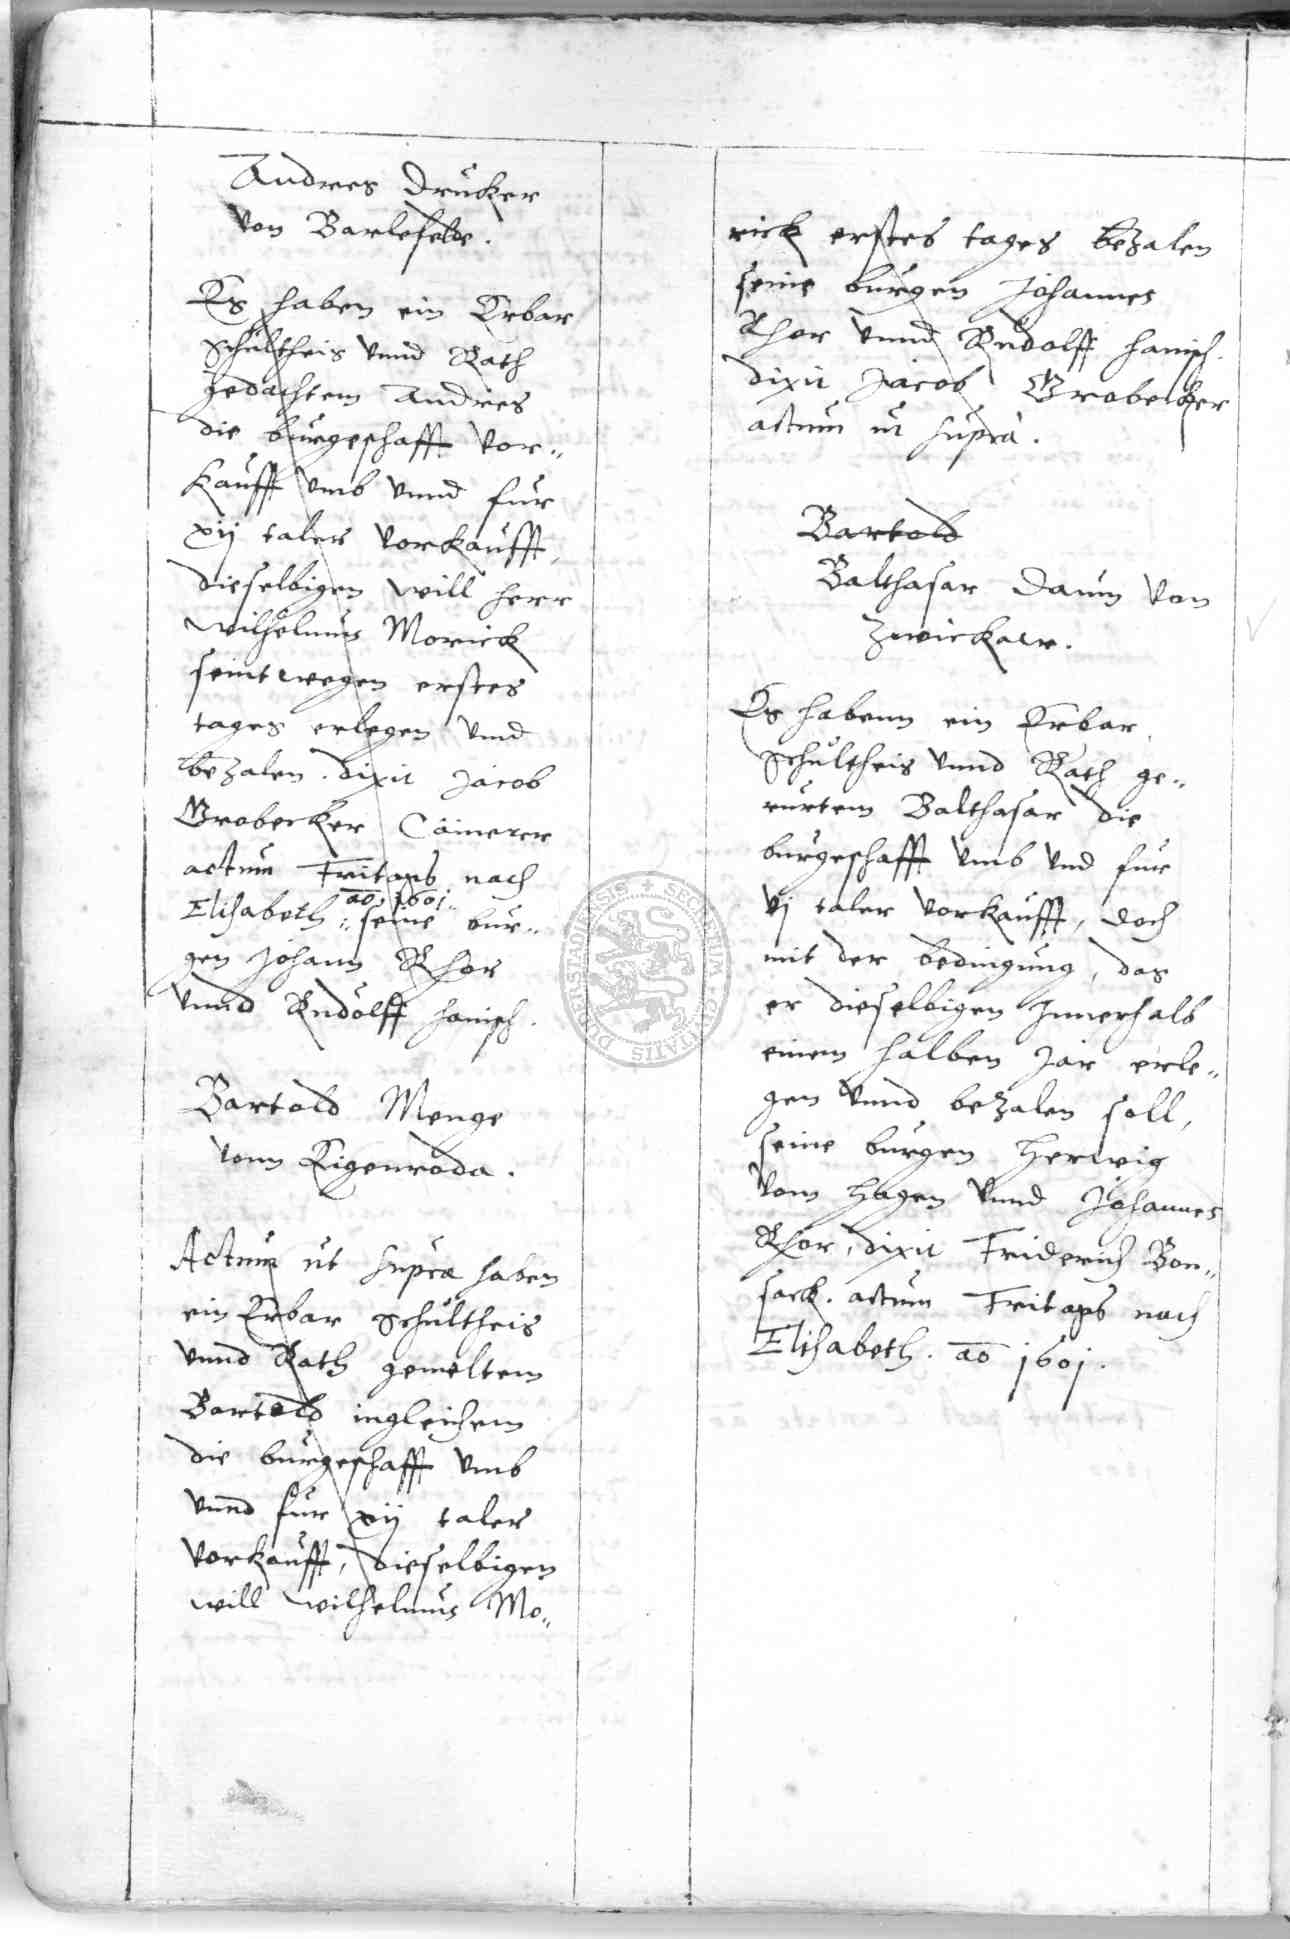 Andrees Drucker
von Barlefelde.
Es haben ein Erbar
Schultheis vnnd Rath
gedachtem Andrees
die burgeschafft vor„
kaufft vmb vnnd fur
xij taler vorkaufft,
dieselbigen will herr
Wilhelmus Morick
seint wegen erstes
tages erlegen vnnd
bezalen. dixit Jacob
Grobecker Cämerer
actum Fritags nach
ao 1601.
Elisabeth :: seine bur„
gen Johann Rhor
vnnd Rudolff hanisch.
Bartold Menge
vonn Eigenroda.
Actum ut supra haben
ein Erbar Schultheis
vnnd Rath gemeltem
Bartold ingleichem
die burgeschafft vmb
vnnd fur xij taler
vorkaufft, dieselbigen
will Wilhelmus Mo„
rick erstes tages bezalen
seine burgen Johannes
Rhor vnnd Rudolff hanisch.
dixit Jacob Grobecker
actum ut supra.
Bartold
Balthasar Daum von
Zwickaw.
Es habenn ein Erbar
Schultheis vnnd Rath ge„
rurtem Balthasar die
burgeschafft vmb vnd fur
vj taler vorkaufft, doch
mit der bedingung, das
er dieselbigen Innerhalb
einem halben Jar erle„
gen vnnd bezalen soll,
seine burgen Herwig
vom Hagen vnnd Johannes
Rhor, dixit Friderich Bon„
sack. actum Fritags nach
Elisabeth. ao 1601.
SECRETUM CIVITATIS DUDERSTADIENSIS